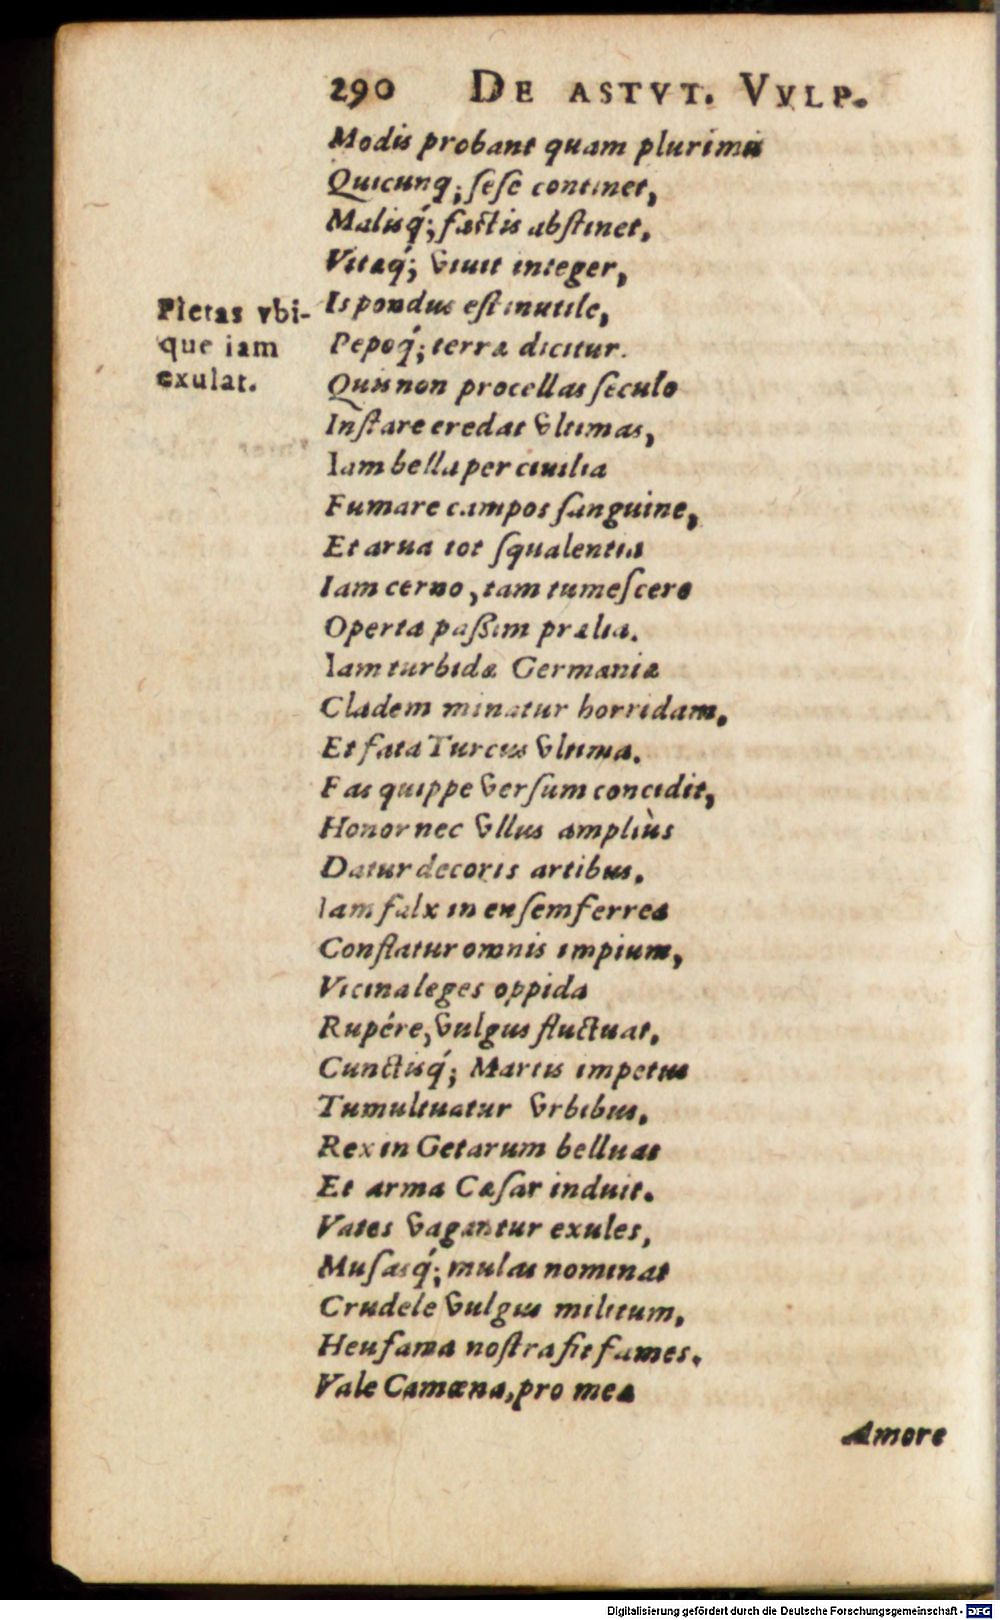 290 DE ASTVT. VVLP.
Modis probant quam plurimis
Quicunq; ſeſe continet,
Malisq́; factis abſtinet,
Vitaq́; viuit integer,
Pietas vbi-
que iam
exulat.
Is pondus eſt inutile,
Pepoq́; terræ dicitur.
Quis non procellas ſeculo
Inſtare credat vltimas,
Iam bella per ciuilia
Fumare campos ſanguine,
Et arua tot ſqualentia
Iam cerno, iam tumeſcere
Operta paßim prælia.
Iam turbidæ Germaniæ
Cladem minatur horridam,
Et fata Turcus vltima.
Fas quippe verſum concidit,
Honor nec vllus ampliùs
Datur decoris artibus.
Iam falx in enſem ferrea
Conflatur omnis impium,
Vicina leges oppida
Rupére, vulgus fluctuat,
Cunctisq́; Martis impetus
Tumultuatur vrbibus.
Rex in Getarum belluas
Et arma Cæſar induit.
Vates vagantur exules,
Muſasq́; mulas nominat
Crudele vulgus militum,
Heu fama noſtra fit fames.
Vale Camœna, pro mea
Amore
Digitalisierung gefördert durch die Deutsche Forschungsgemeinschaft - DFG